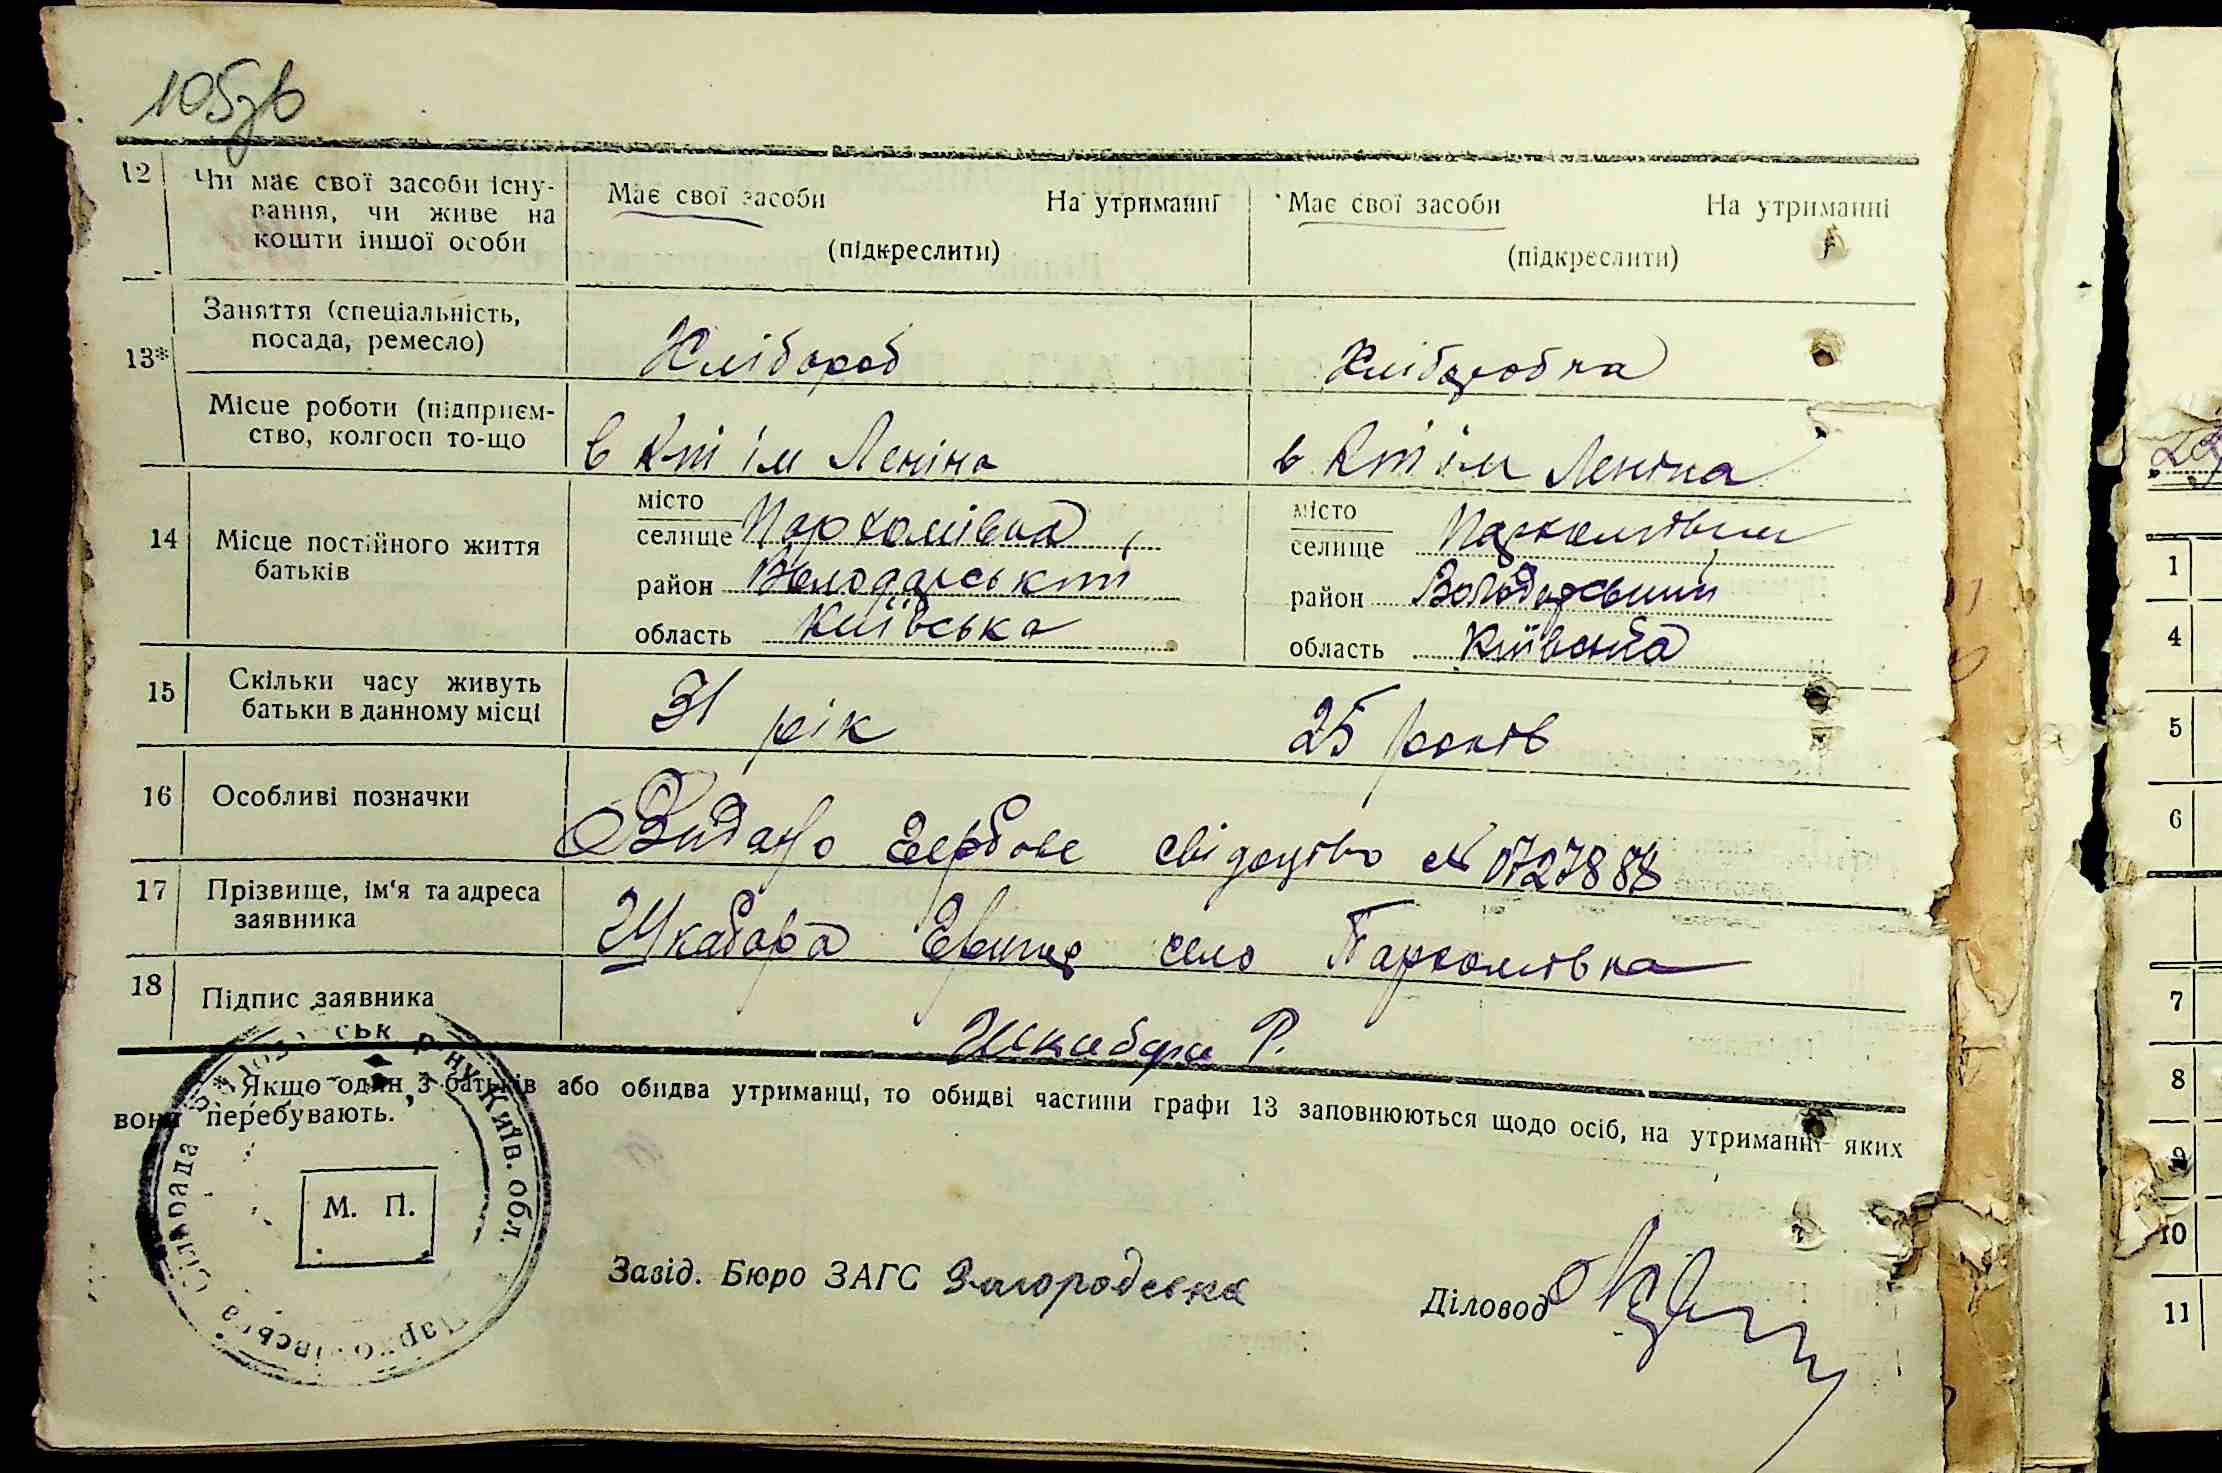 105зв
12 Чи має свої засоби існу-
вання, чи живе на
кошти іншої особи
Має свої засоби На утриманні
(підкреслити)
Має свої засоби На утриманні
(підкреслити)
13* Заняття (спеціальність,
посада, ремесло)
Хлібороб
Хліборобка
Місце роботи (підприєм-
ство, колгосп то-що
в к-ті ім Леніна
в к-ті ім Леніна
14 Місце постійного життя
батьків
місто
селище Пархомівка,
район Володарський
область Київська
місто
селище Пархомівка
район Володарський
область Київська
15 Скільки часу живуть
батьки в данному місці
31 рік
25 років
16 Особливі позначки
Видано гербове свідоцтво №
17 Прізвище, ім'я та адреса
заявника
Шкабара село Пархомівка
18 Підпис заявника
Шкабара Р.
* Якщо один з батьків або обидва утриманці, то обидві частини графи 13 заповнюються щодо осіб, на утриманні яких
вони перебувають.
Київ. обл.
Сільрада
М. П.
Завід. Бюро ЗАГС Загородська
Діловод
1
4
5
6
7
8
9
10
11